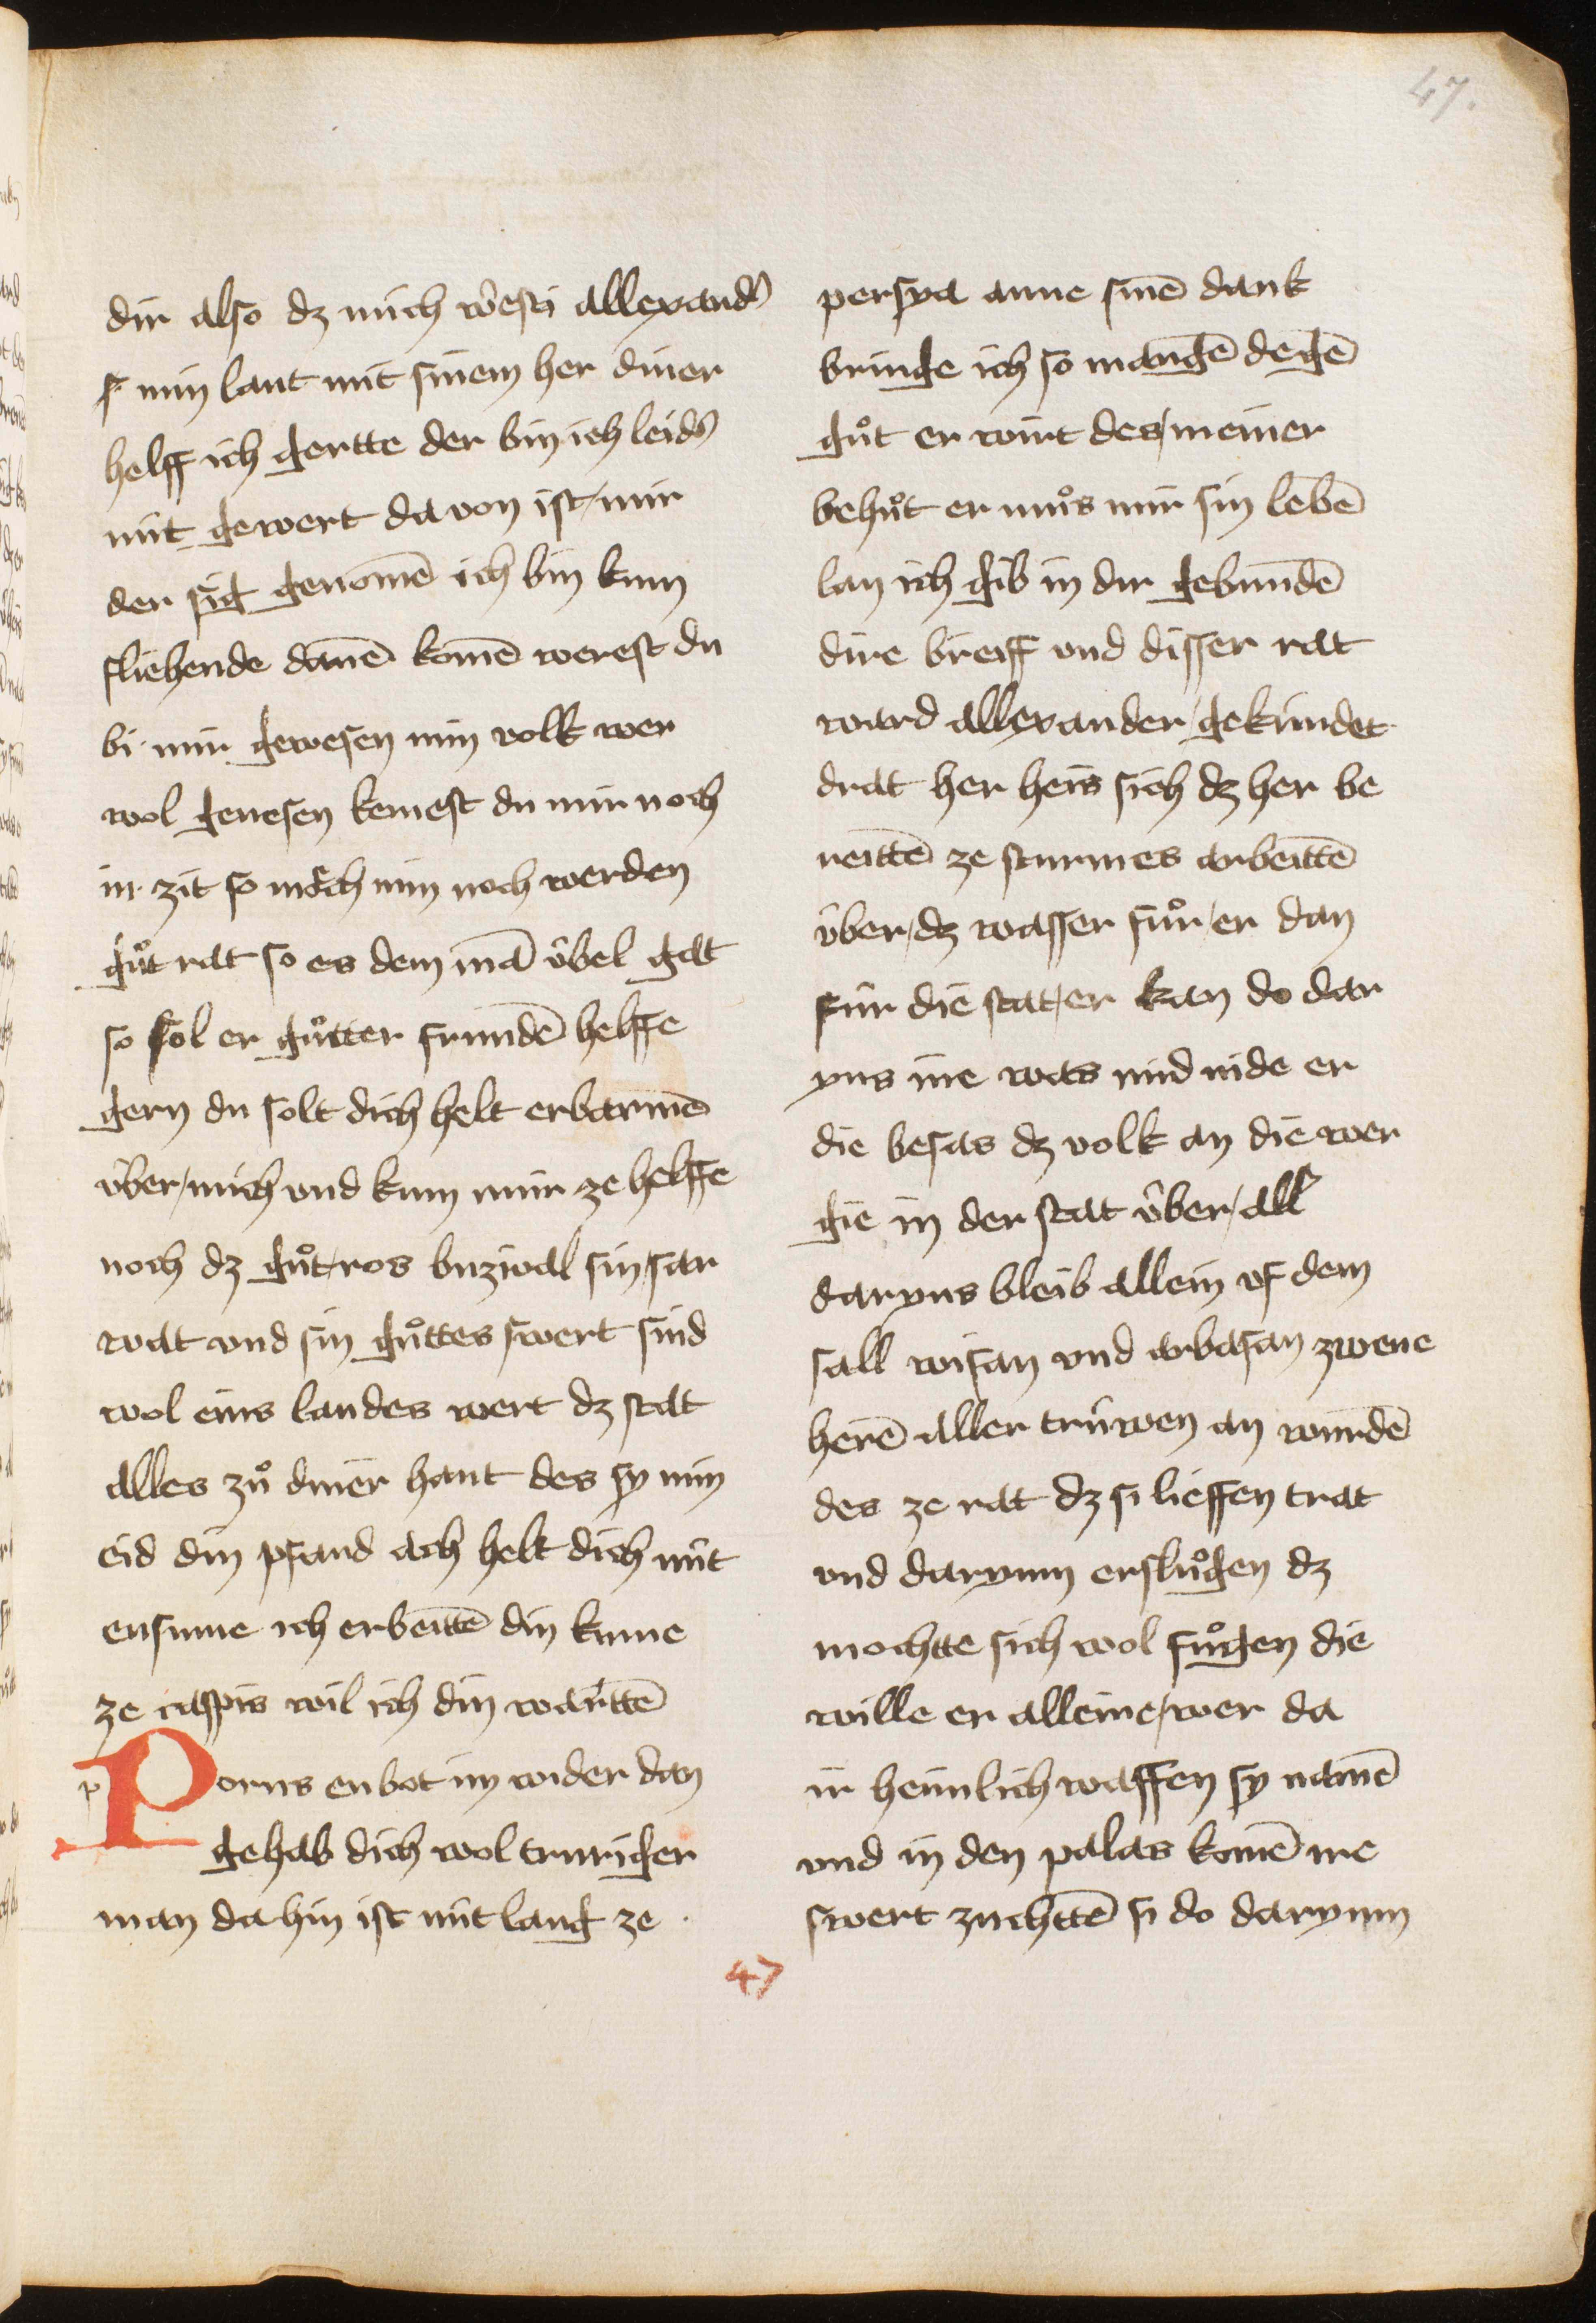 47.
dir also dz mich wͤste allexandˀ
s min lant mit sinem her diner
helff ich gertte der bin ich leidˀ
nit gewert da von ist mir
der sig genomē ich bin kum
fliehende danē komē werest du
bi mir gewesen min volk wer
wol genesen kemest du mir noch
in zit so mͦch min noch werden
guͦt rat so es dem mā v́bel gat
so sol er guͦtter frundē helffe
gern du solt dich helt erbarmē
v́ber mich vnd kum mir ze helffe
noch dz guͦt ros buzival sin sar
wat vnd sin guͦttes swert sind
wol eins landes wert dz stat
alles zuͦ diner hant des sy min
eid din pfand ach helt dich nút
ensume ich erbeittē din kume
ze caspis wil ich din warttē
p Porus enbot im wider dan
gehab dich wol truriger
man da hin ist nit lang ze
persya anne sinē dank
bringe ich so mangē degē
guͦt er wirt des meiner
behuͦt er muͦs mir sin lebē
lan ich gib in dir gebundē
dire breiff vnd disser rat
ward allexander gekúndet
drat her heis sich dz her be
reittē ze sturmes arbeittē
v́ber dz wasser fuͦr er dan
fúr die stat er kan do dar
yus nie was nid nide er
die besas dz volk an die wer
gie in der stat v́ber all
daryus bleib allein vf dem
sall wisan vnd arbasan zwene
herē aller trúwen an wurdē
des ze rat dz si lieffen trat
vnd daryum ersluͦgen dz
mochtte sich wol fuͦgen die
wille er alleine wer da
ir heimlich waffen sy namē
vnd in den palas komē ire
swert zuchttē si do daryum
47